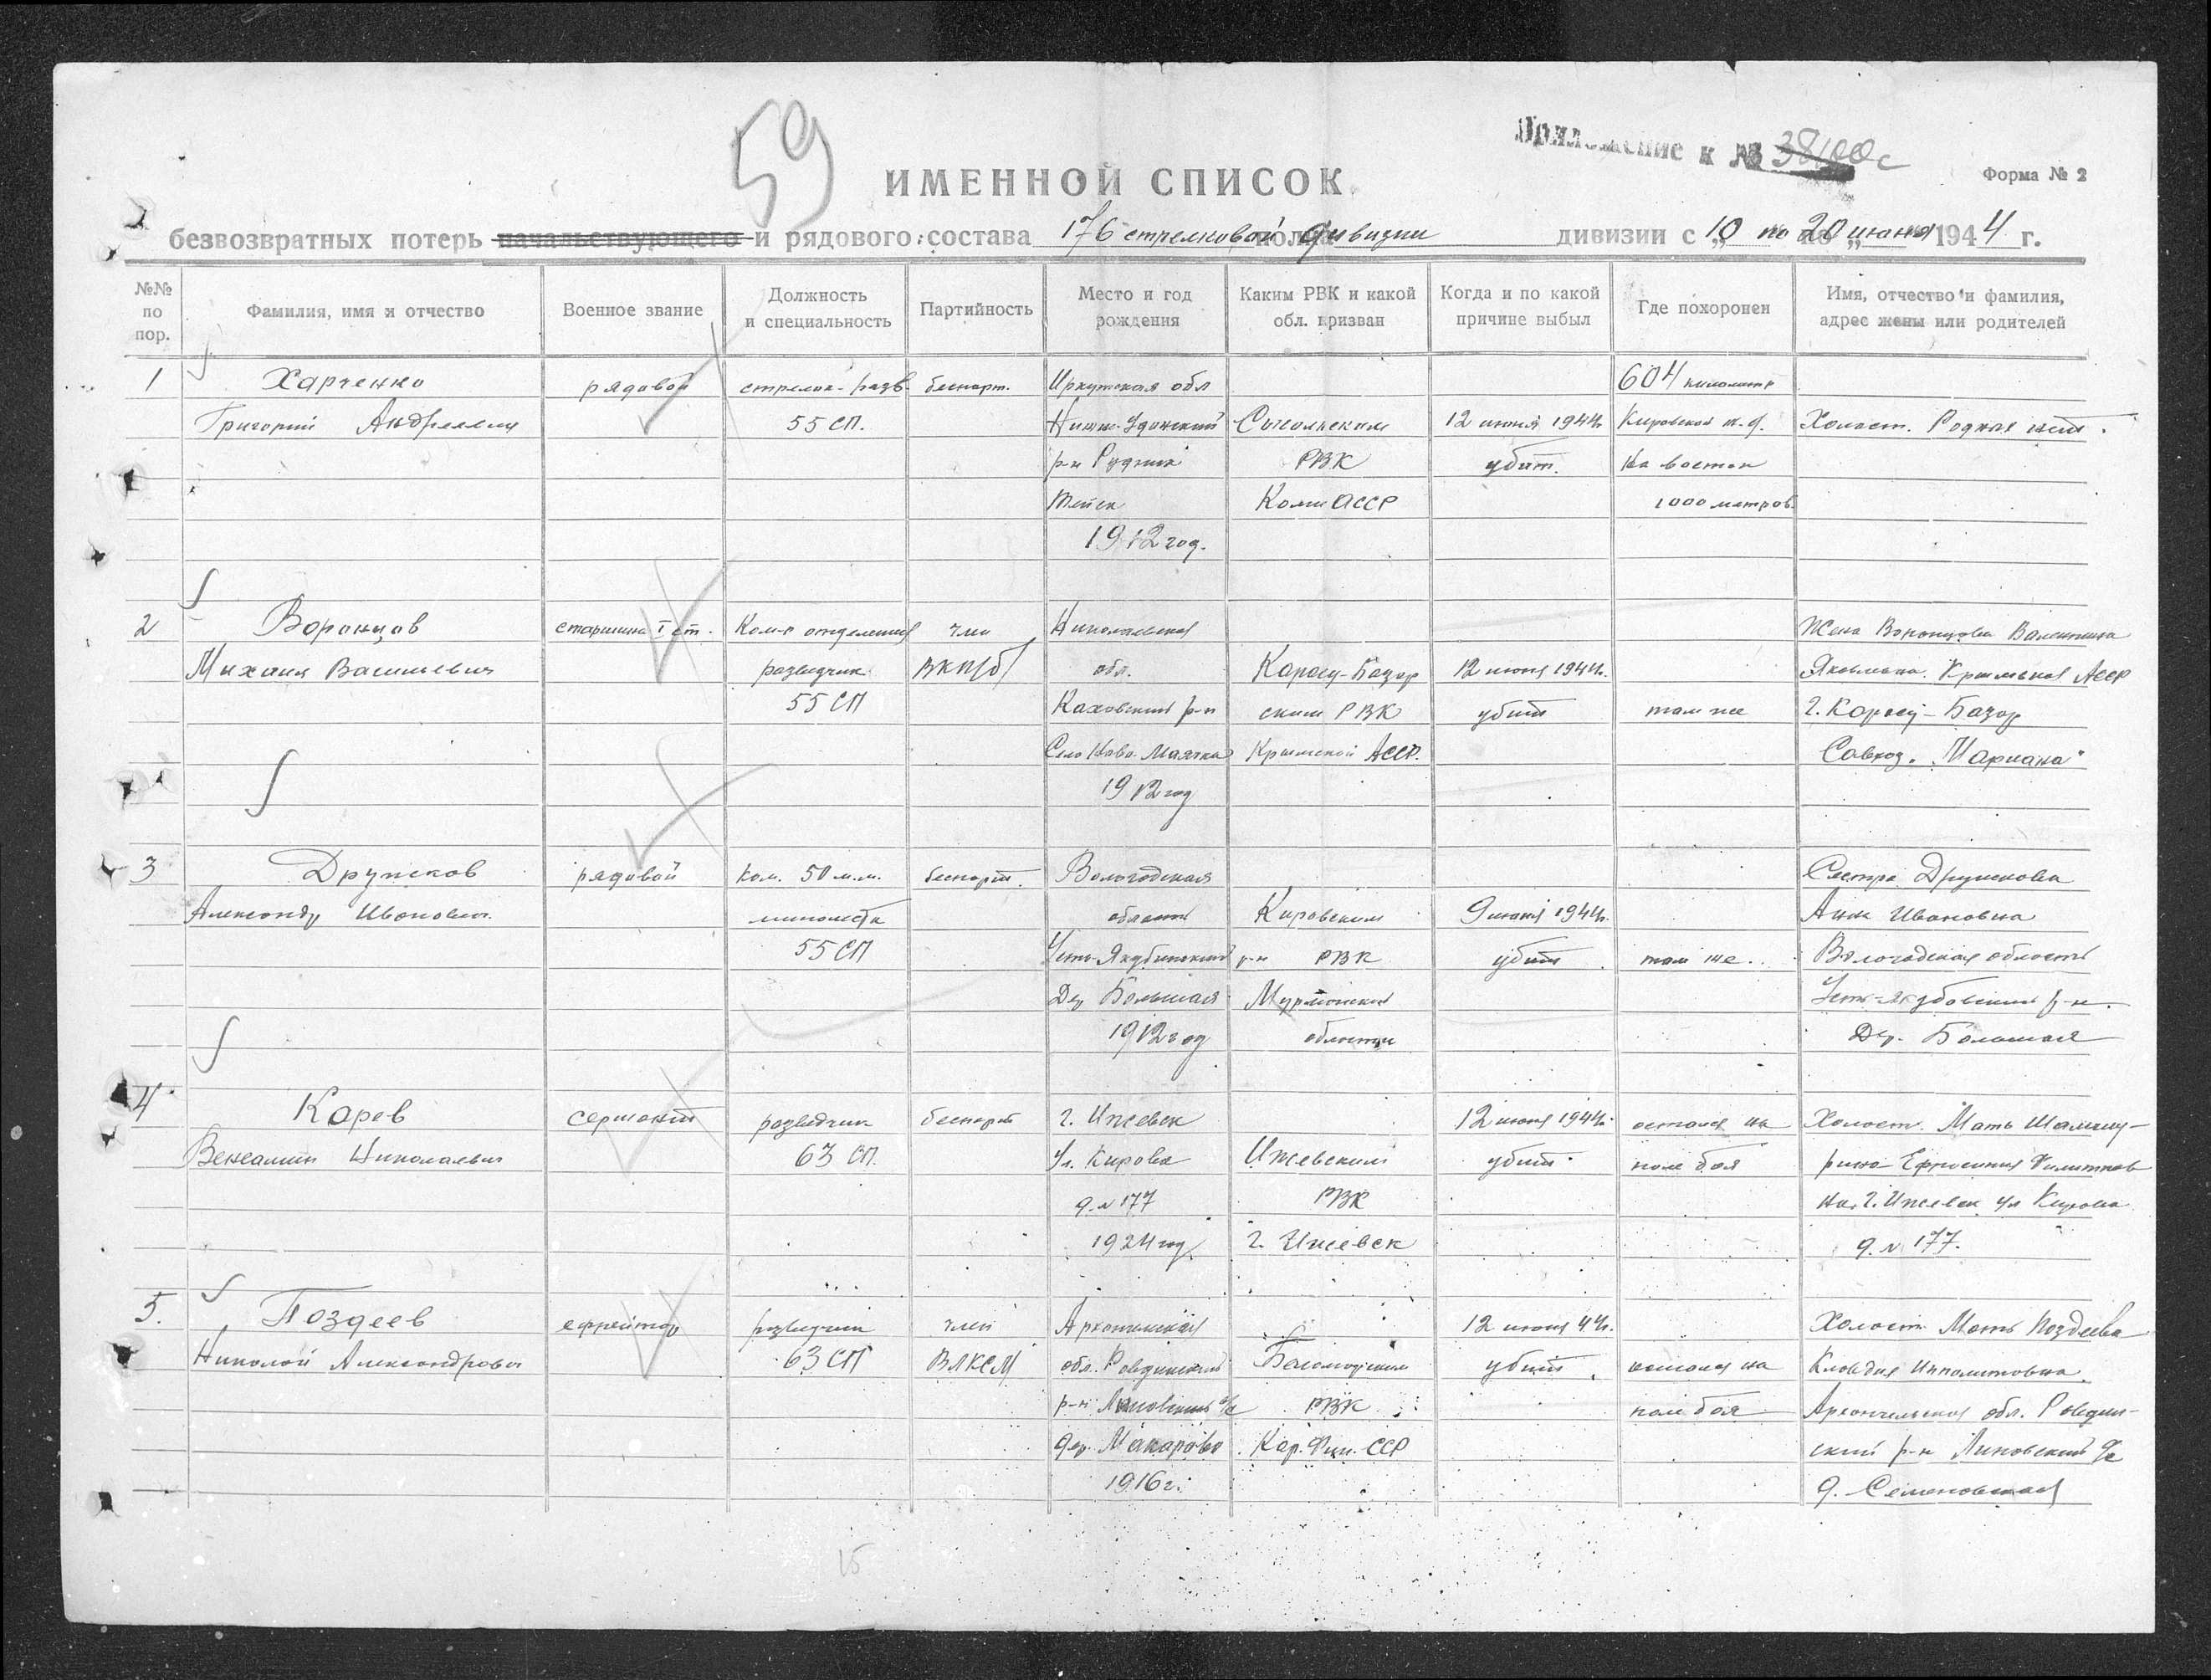 59
Приложение к № 38100с
Форма № 2
ИМЕННОЙ СПИСОК
безвозвратных потерь начальствующего и рядового состава 176 стрелковой дивизии дивизии с „10 по 20 июня 1944 г.
№№ по пор.
Фамилия, имя и отчество
Военное звание
Должность и специальность
Партийность
Место и год рождения
Каким РВК и какой обл. призван
Когда и по какой причине выбыл
Где похоронен
Имя, отчество и фамилия, адрес жены или родителей
1 Харченко рядовой стрелок-разв. беспарт. Иркутская обл 604 километр
Григорий Андреевич 55 СП. Нижн-Удинский Сысольским 12 июня 1944г. Кировской ж.д. Холост. Родных нет.
р-н Рудник РВК убит. на восток
Коми АССР 1000 метров.
1912 год.
2 Воронцов старшина I ст. Ком-р отделения член Николаевская Жена Воронцова Валентина
Михаил Васильевич разведчик ВКП/б/ обл. Карасу-Базар 12 июня 1944г. Яковлевна. Крымская АССР
55 СП Каховский р-н ским РВК убит там же г. Карасу-Базар
Село Ново Маячка Крымской АССР. Совхоз „Мариано"
1912 год
3 Дружков рядовой ком. 50 м.м. беспарт. Вологодская Сестра Дружкова
Александр Иванович. миномета область Кировским 9 июня 1944г. Анна Ивановна
55 СП Усть-Якубинский р-н РВК убит там же. Вологодская область
Дер Большая Мурманской Усть-Якубовский р-н.
1912 год области Дер. Большая
4 Карев сержант разведчик беспарт г. Ижевск 12 июня 1944г. остался на Холост. Мать
Вениамин Николаевич 63 СП. Ул. Кирова Ижевским убит. поле боя Ефросинья Филиппов
д. № 177 РВК на. г. Ижевск ул Кирова
1924 год г. Ижевск д. № 177.
5. Поздеев ефрейтор разведчик член Архангельская 12 июня 44г. Холост Мать Поздеева
Николай Александрович 63 СП ВЛКСМ обл. Ровдинский Беломорским убит. остался на Клавдия Ипполитовна.
р-н Липовский с/с РВК поле боя Архангельская обл. Ровдин-
дер. Макарово Кар. Фин. ССР ский р-н Липовский с/с
1916 г. д. Семеновская
15